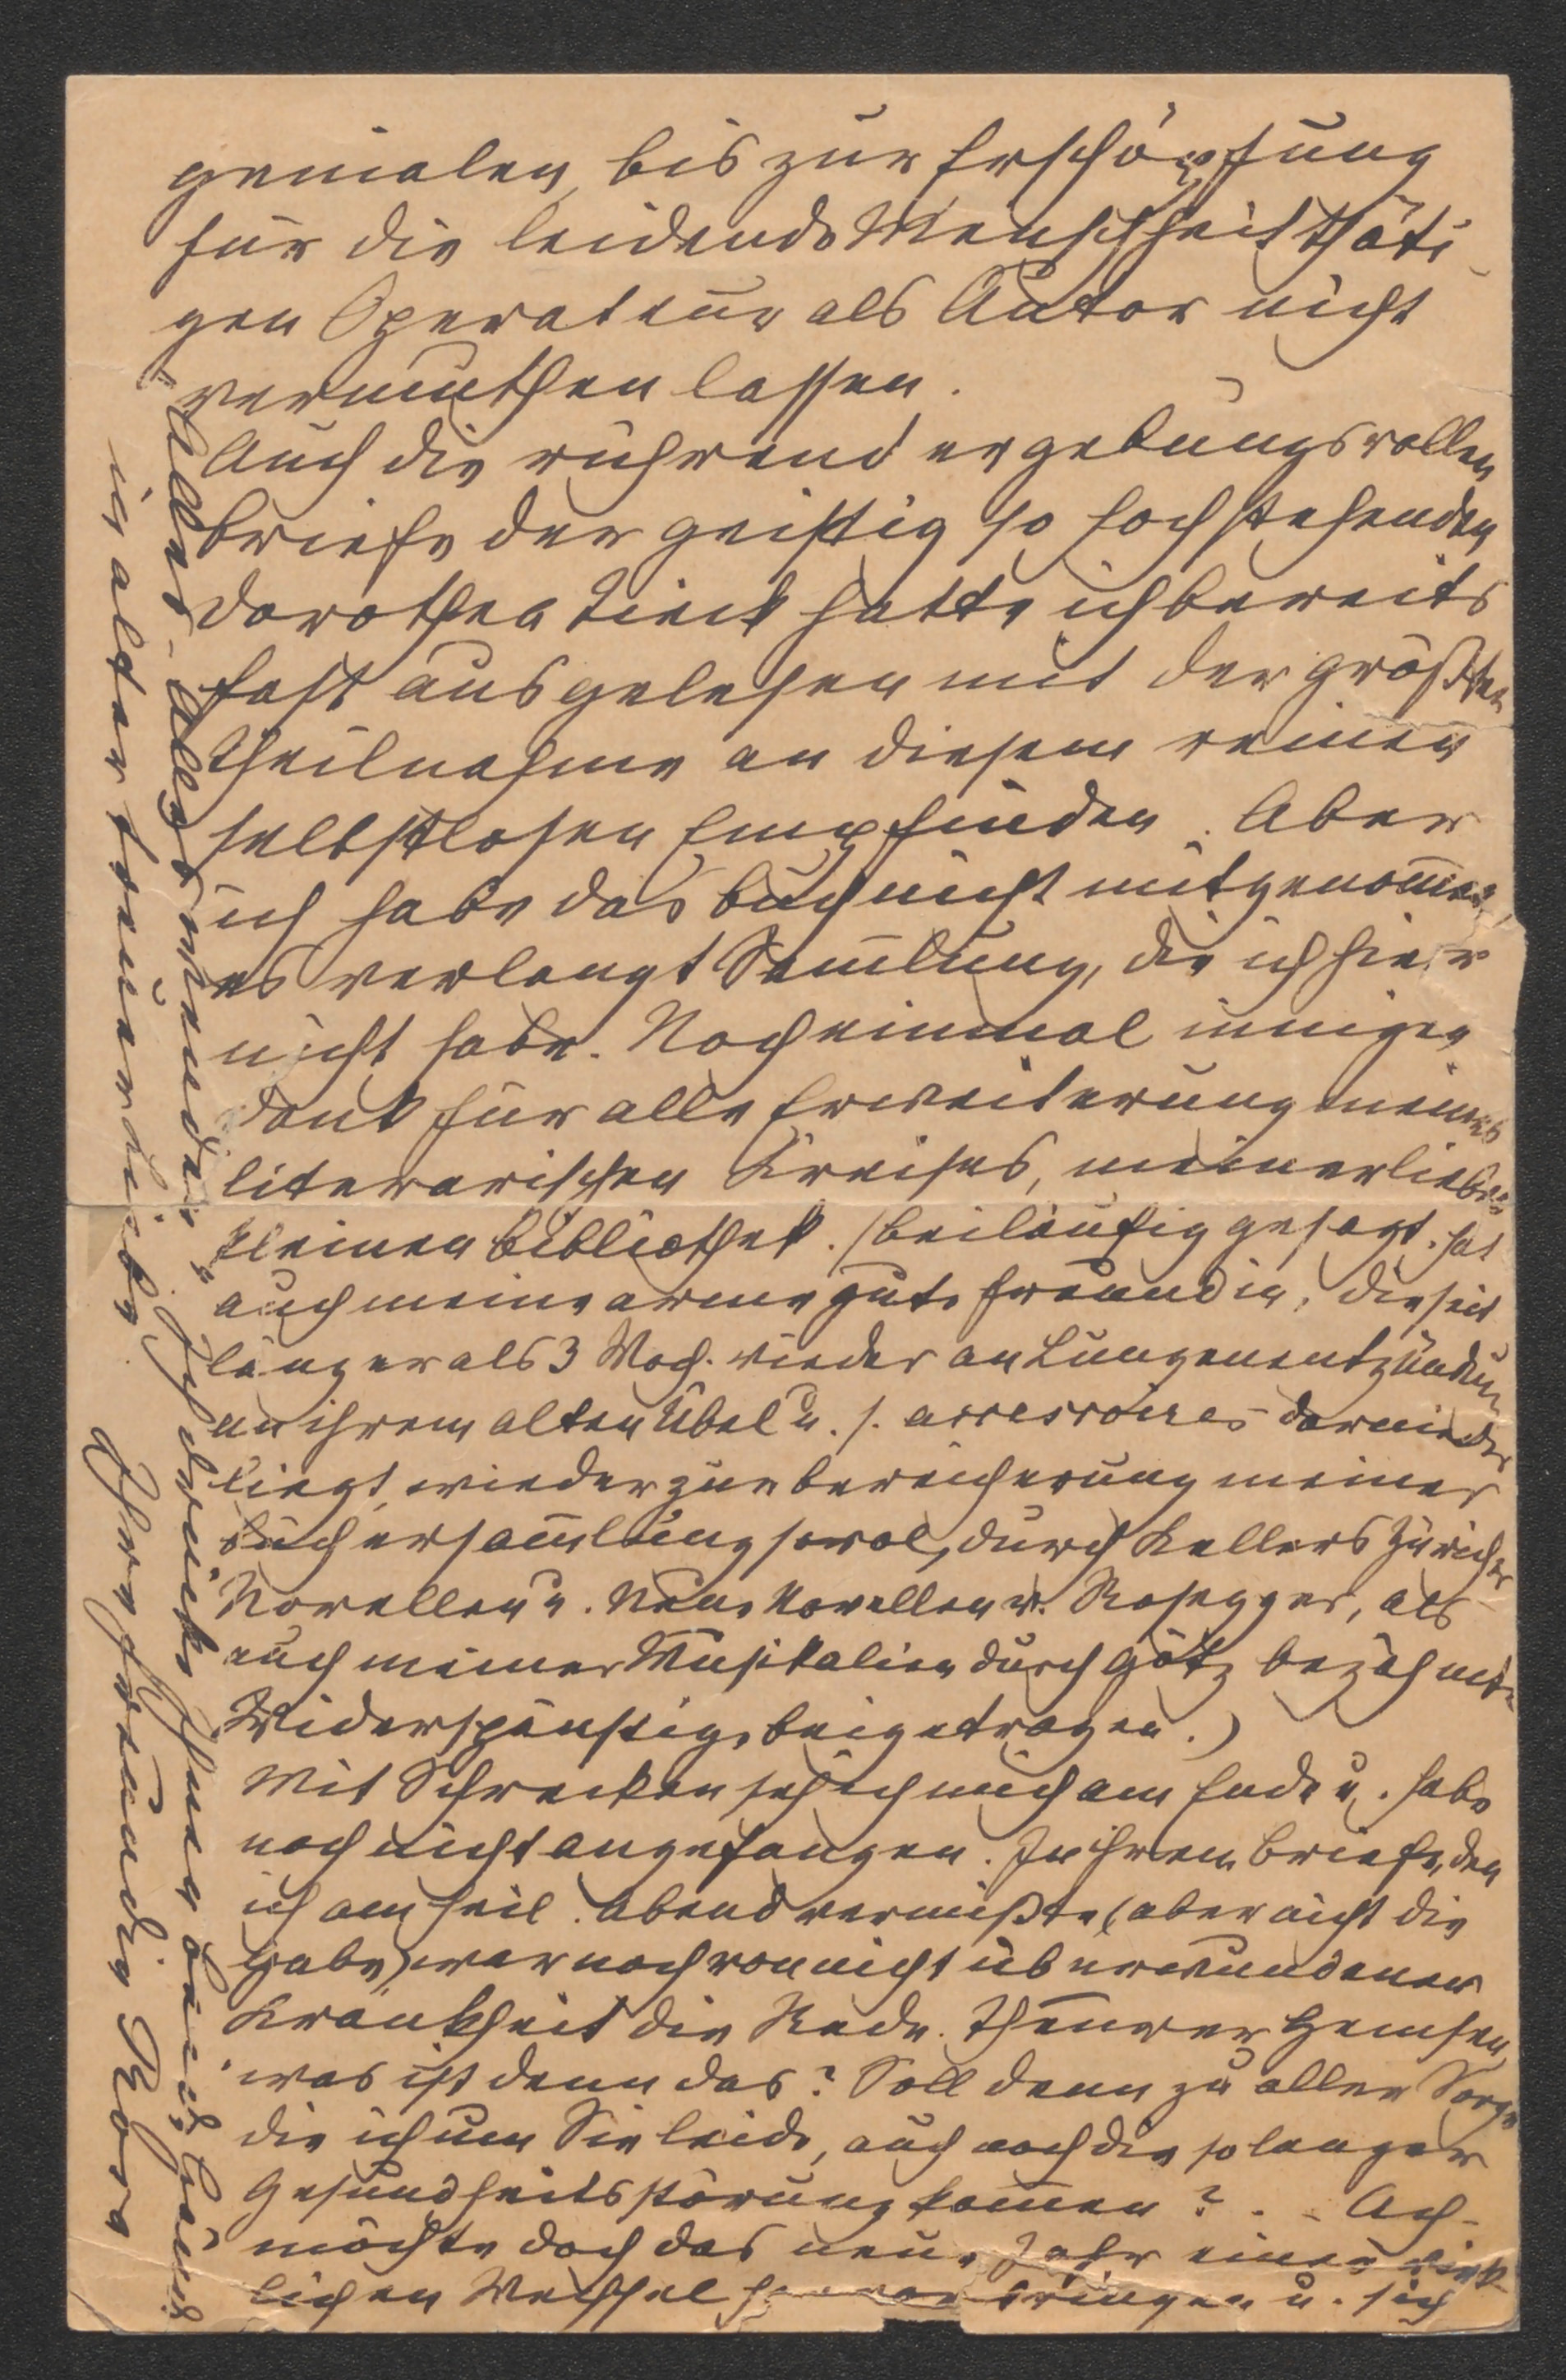 genialen, bis zur Erschöpfung
für die leidende Menschheit thäti-
gen Operateur als Autor nicht
vermuthen lassen.
Auch die rührend ergebungsvollen
Briefe der geistig so hochstehenden
Dorothea Tieck hatte ich bereits
fast ausgelesen mit der größten
Theilnahme an diesem reinen
selbstlosen Empfinden. Aber
ich habe das Buch nicht mitgenom̄en,
es verlangt Sam̄lung, die ich hier
nicht habe. Noch einmal innigen
Dank für alle Erweiterung meines
literarischen Kreises, meiner lieben
kleinen Bibliothek. (Beiläufig gesagt, hat
auch meine arme gute Freundin, die seit
länger als 3 Woch. wieder an Lungenentzündung
an ihrem alten Übel u. s. accessoires darnieder
liegt, wieder zur Bereicherung meiner
Büchersam̄lung sowol, durch Kellers Züricher
Novellen u. Neue Novellen v. Rosegger, als
auch meiner Musikalien durch Götz bezähmte
Widerspänstige beigetragen.)
Mit Schrecken seh ich mich am Ende u. habe
noch nicht angefangen. In ihrem Briefe, den
ich am heil. Abend vermißte (aber nicht die
Gabe) war noch von nicht überwundener
Krankheit die Rede. Theurer Hemsen,
was ist denn das? Soll denn zu aller Sorge
die ich um Sie leide, auch noch die so langer
Gesundheitsstörung kom̄en? . . Ach-
möchte doch das neue Jahr einen wirk-
lichen Wechsel hervorbringen u. sich
Alles - Alles wenden. Ich drücke Ihnen
in alter treuer Liebe
Ihre Freundin